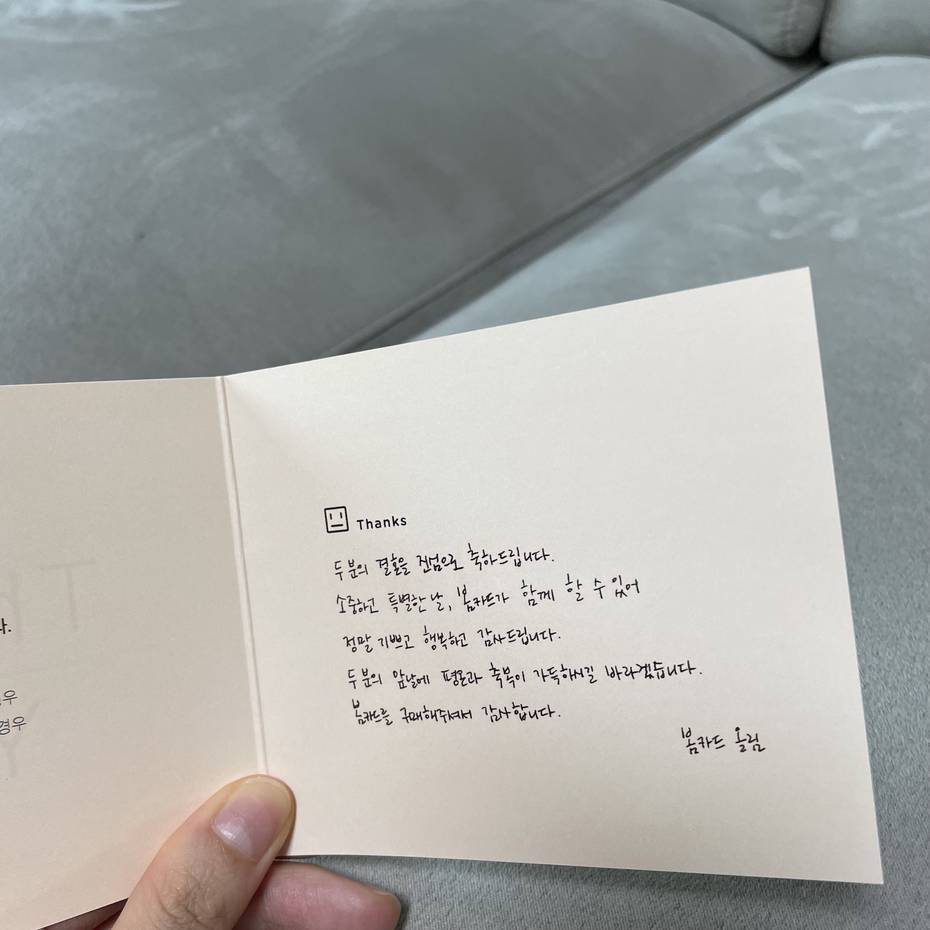 Thanks
두 분의 결혼을 진심으로 축하드립니다.
소중하고 특별한 날, 봄카드가 함께 할 수 있어
정말 기쁘고 행복하고 감사드립니다.
두 분의 앞날에 평온과 축복이 가득하시길 바라겠습니다.
봄카드를 구매해주셔서 감사합니다.
봄카드 올림
다.
경우